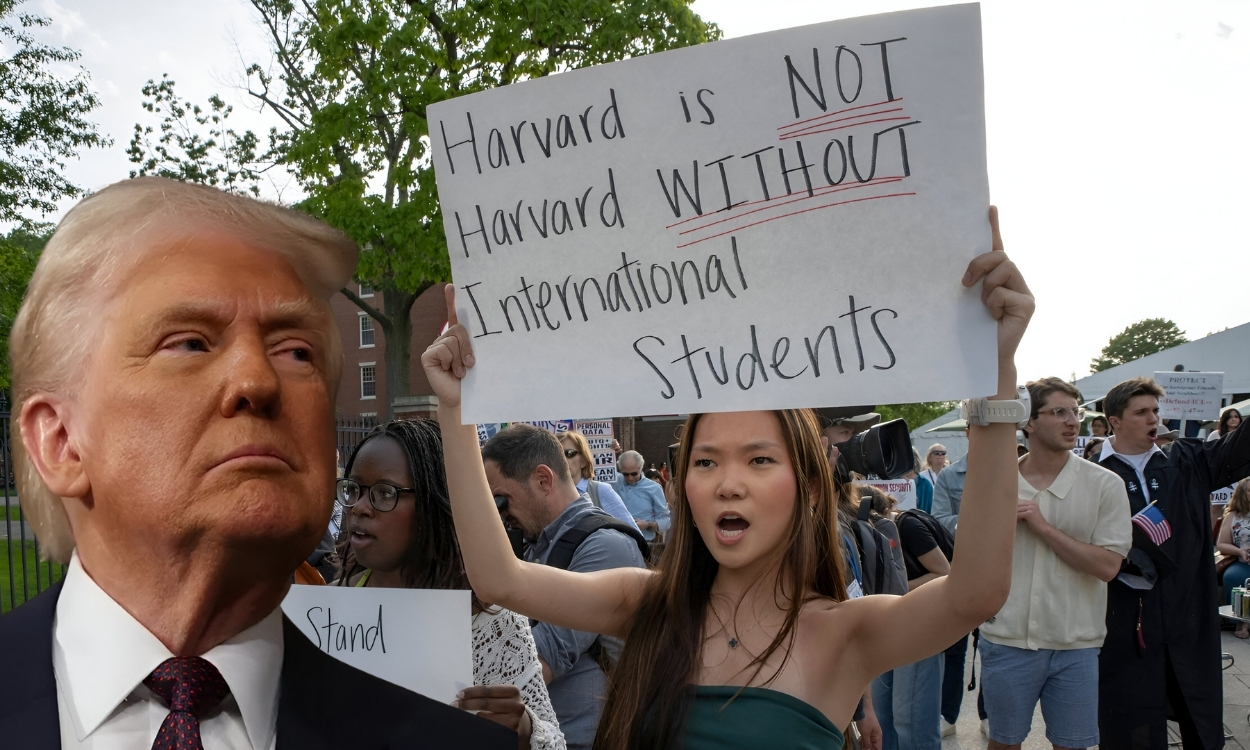 Harvard is NOT
Harvard WITHOUT
International
Students
Stand
PERSONAL
DATA
PROTECT